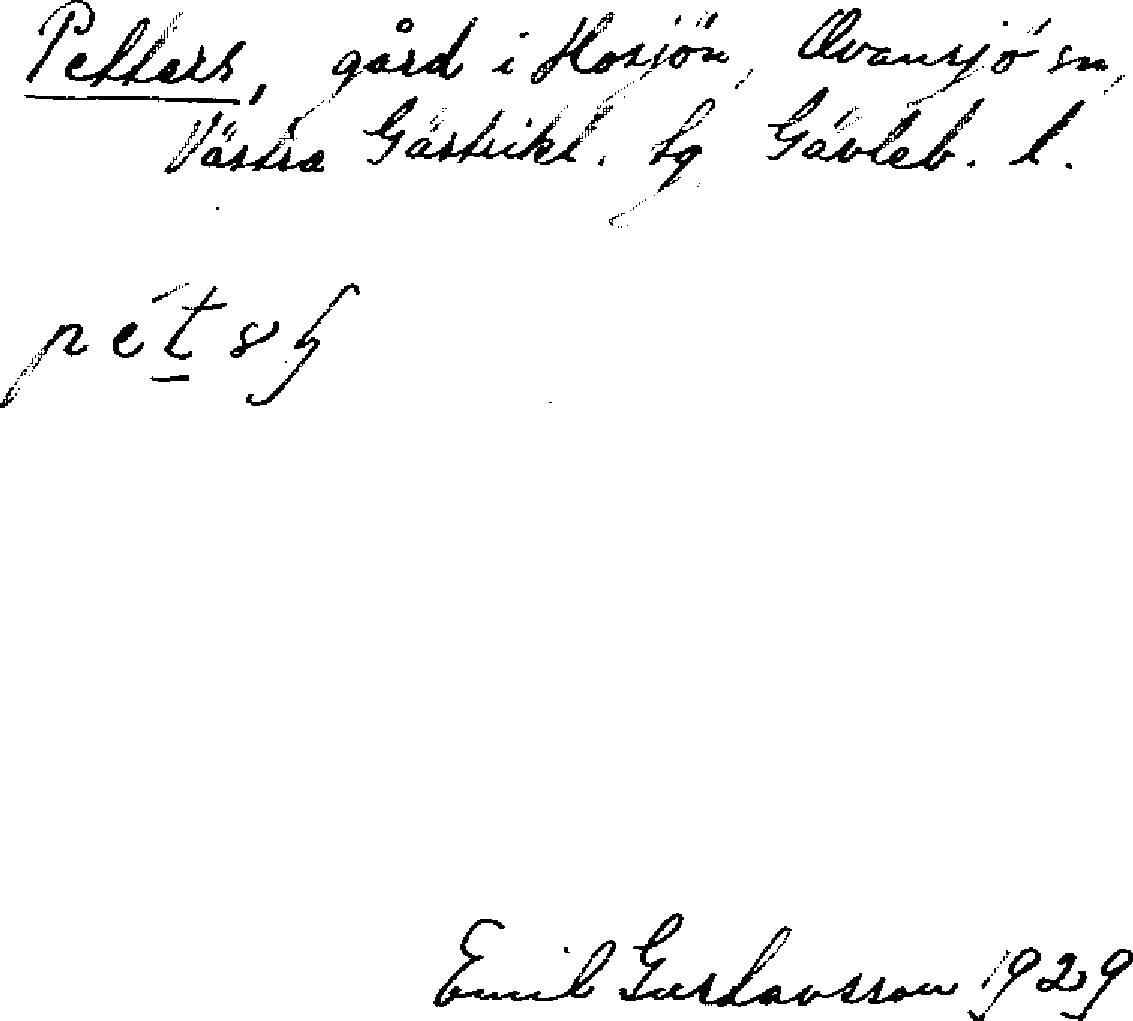 Petters, gård i Hosjön, Ovansjö sn,
Västra Gästrikl. tg Gävleb. l.
Emil Gustavsson 1929